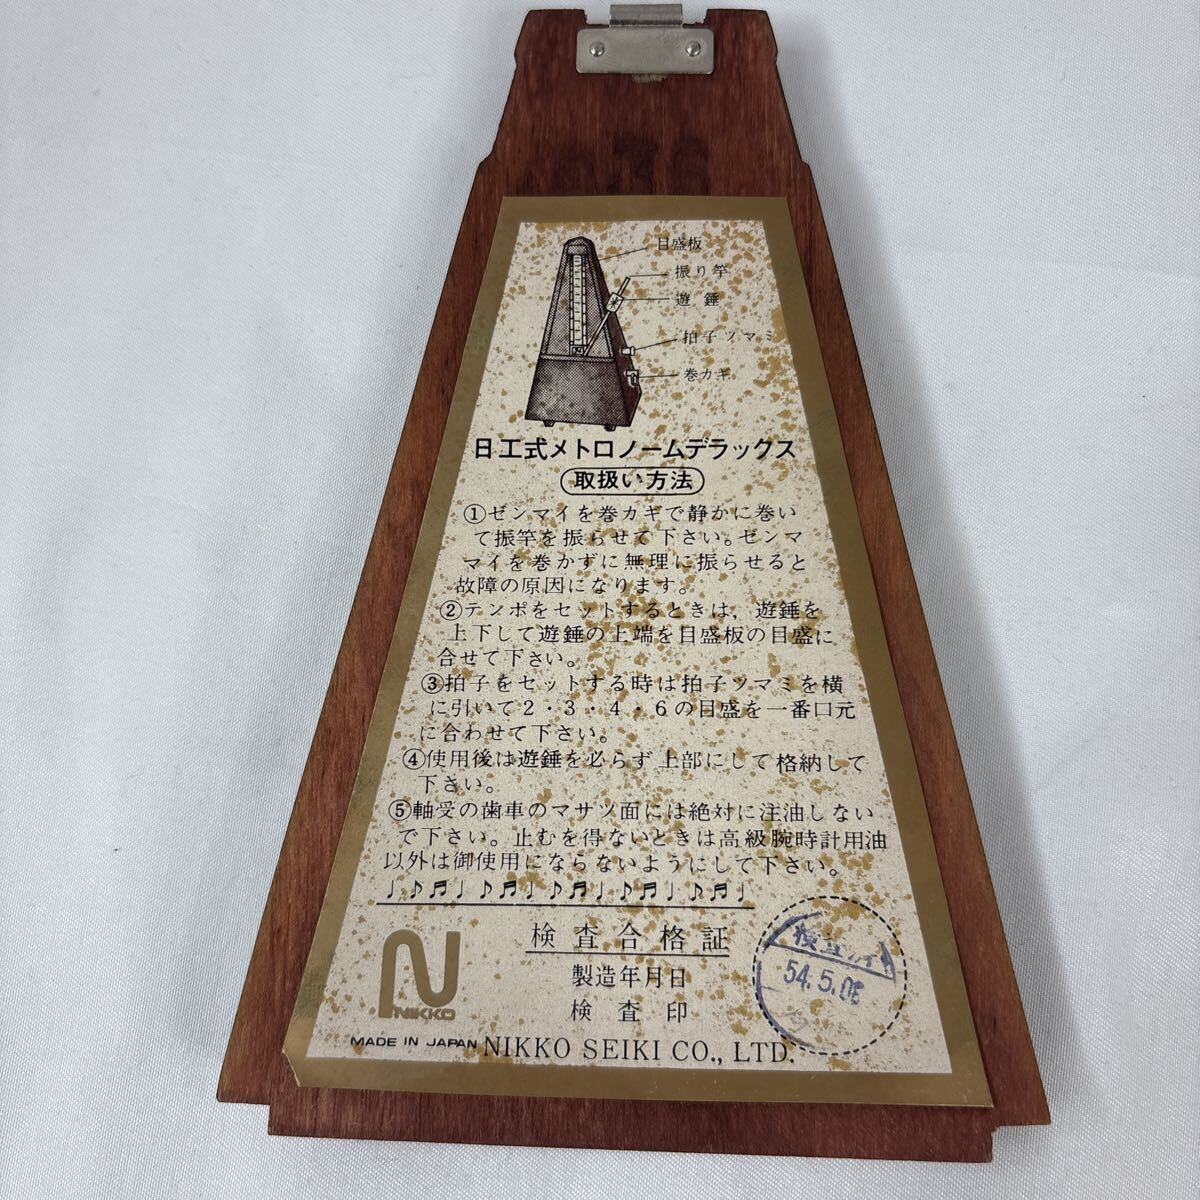 目盛板
振り竿
遊錘
拍子ツマミ
巻カギ
日工式メトロノームデラックス
取扱い方法
①ゼンマイを巻カギで静かに巻い
て振竿を振らせて下さい。ゼンマ
マイを巻かずに無理に振らせると
故障の原因になります。
②テンポをセットするときは，遊錘を
上下して遊錘の上端を目盛板の目盛に
合せて下さい。
③拍子をセットする時は拍子ツマミを横
に引いて2・3・4・6の目盛を一番口元
に合わせて下さい。
④使用後は遊錘を必らず上部にして格納して
下さい。
⑤軸受の歯車のマサツ面には絶対に注油しない
で下さい。止むを得ないときは高級腕時計用油
以外は御使用にならないようにして下さい。
検査合格証
製造年月日
検査印
54.5.08
NIKKO
MADE IN JAPAN NIKKO SEIKI CO., LTD.